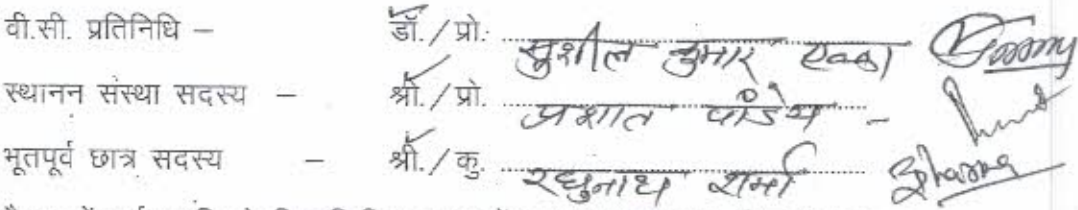 वी.सी. प्रतिनिधि – डॉ./प्रो. सुशील कुमार एक्का
स्थानन संस्था सदस्य – श्री./प्रो. प्रशांत पाण्डेय -
भूतपूर्व छात्र सदस्य – श्री./कु. रघुनाथ शर्मा Sharma